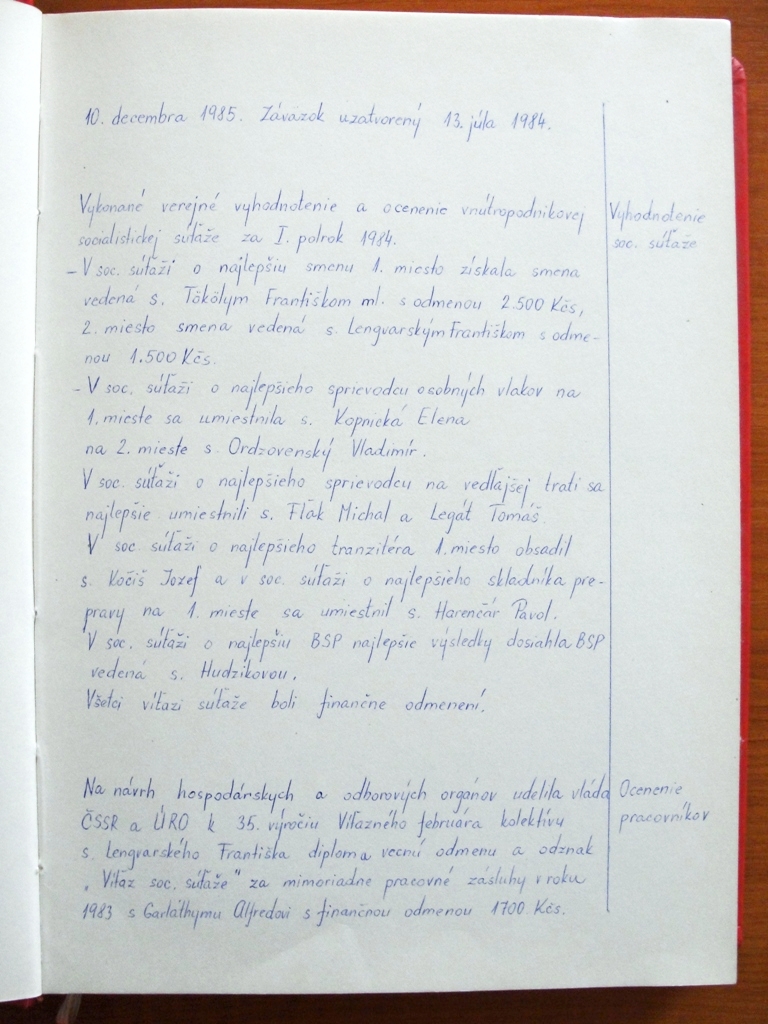 10. decembra 1985. Záväzok uzatvorený 13. júla 1984.
Vykonané verejné vyhodnotenie a ocenenie vnútropodnikovej
socialistickej súťaže za I. polrok 1984.
Vyhodnotenie
soc. súťaže
- V soc. súťaži o najlepšiu smenu 1. miesto získala smena
vedená s. Tökölym Františkom ml. s odmenou 2.500 Kčs,
2. miesto smena vedená s. Lengvarským Františkom s odme-
nou 1.500 Kčs.
- V soc. súťaži o najlepšieho sprievodcu osobných vlakov na
1. mieste sa umiestnila s. Kopnická Elena
na 2. mieste s. Ordzovenský Vladimír.
V soc. súťaži o najlepšieho sprievodcu na vedľajšej trati sa
najlepšie umiestnili s. Flak Michal a Legát Tomáš.
V soc. súťaži o najlepšieho tranzitéra 1. miesto obsadil
s. Kočiš Jozef a v soc. súťaži o najlepšieho skladníka pre-
pravy na 1. mieste sa umiestnil s. Harenčár Pavol.
V soc. súťaži o najlepšiu BSP najlepšie výsledky dosiahla BSP
vedená s. Hudzikovou.
Všetci víťazi súťaže boli finančne odmenení.
Na návrh hospodárskych a odborových orgánov udelila vláda
ČSSR a ÚRO k 35. výročiu Víťazného februára kolektívu
s. Lengvarského Františka diplom a vecnú odmenu a odznak
„Víťaz soc. súťaže" za mimoriadne pracovné zásluhy v roku
1983 s Garláthymu Alfredovi s finančnou odmenou 1700 Kčs.
Ocenenie
pracovníkov